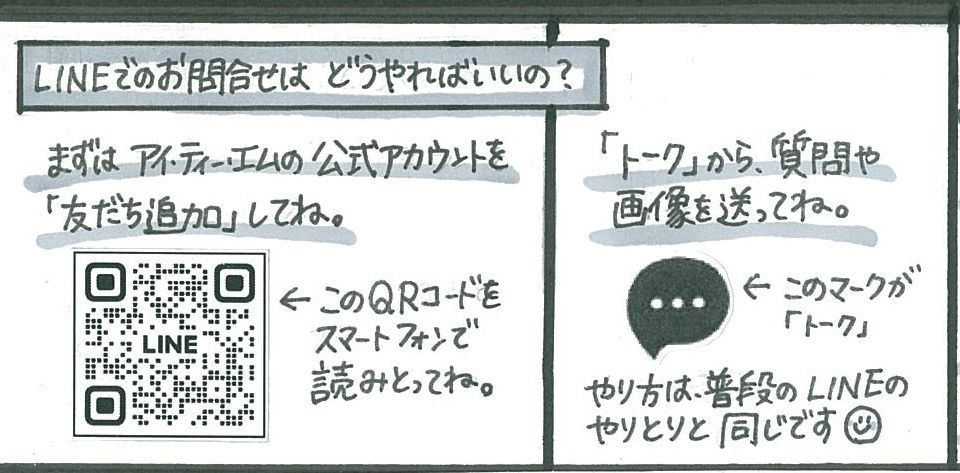 LINEでのお問合せは どうやればいいの？
まずは アイ・ティー・エムの 公式アカウントを
「友だち追加」してね。
LINE
← このQRコードを
スマートフォンで
読みとってね。
「トーク」から、質問や
画像を送ってね。
← このマークが
「トーク」
やり方は、普段のLINEの
やりとりと 同じです